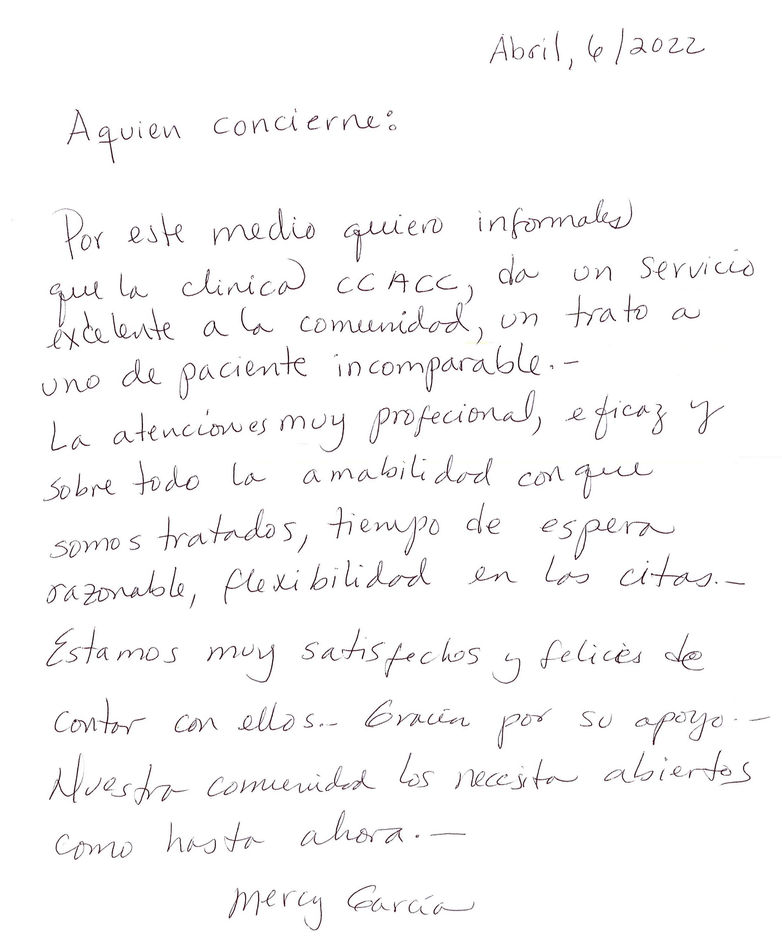 Abril, 6/2022
Aquien concierne:
Por este medio quiero informales
que la clinica CCACC, da un servicio
excelente a la comunidad, un trato a
uno de paciente incomparable.-
La atención es muy profecional, eficaz y
sobre todo la amabilidad con que
somos tratados, tiempo de espera
razonable, flexibilidad en las citas.-
Estamos muy satisfechos y felices de
contar con ellos.- Gracias por su apoyo.-
Nuestra comunidad los necesita abiertos
como hasta ahora.-
Mercy García